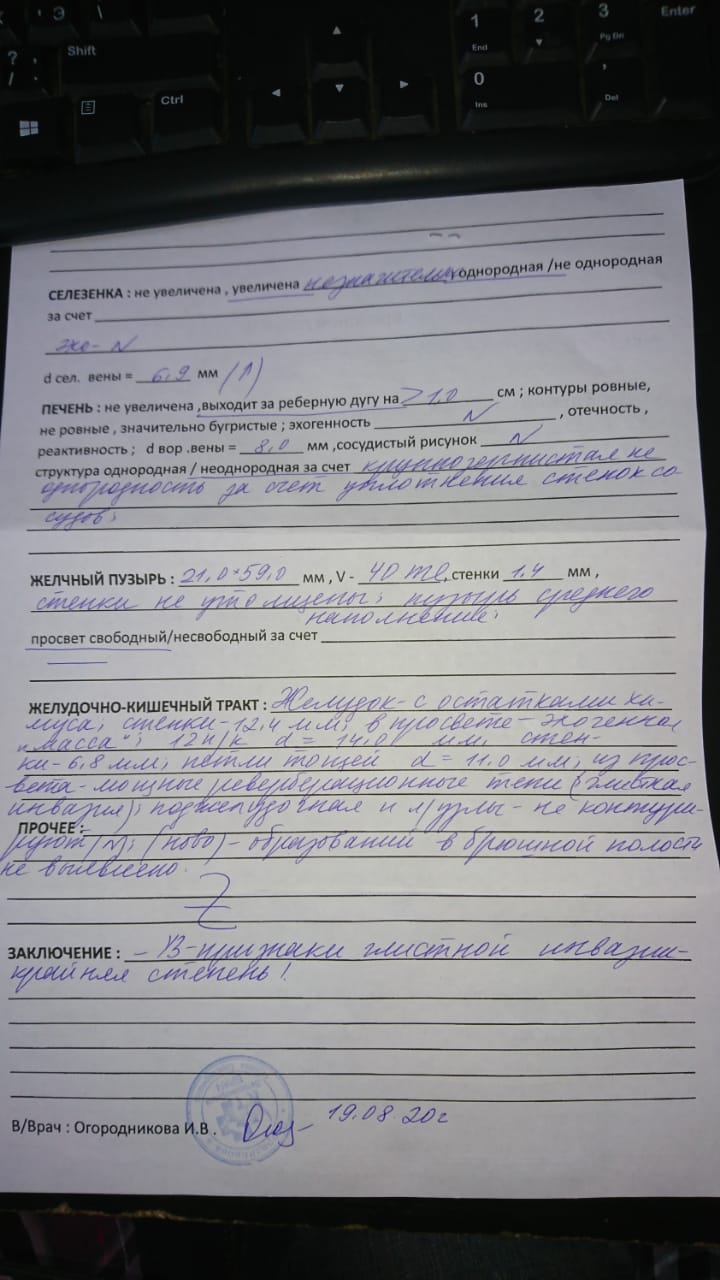 Э \
Shift
Ctrl
1
End
2
3
Pg Dn
Enter
0
Ins
,
Del
СЕЛЕЗЕНКА : не увеличена , увеличена незначительно, однородная /не однородная
за счет
эхо- N
d сел. вены = 6,9 мм (↑)
ПЕЧЕНЬ : не увеличена ,выходит за реберную дугу на >1,0 см ; контуры ровные,
не ровные , значительно бугристые ; эхогенность N , отечность ,
реактивность ; d вор .вены = 8,0 мм ,сосудистый рисунок N
структура однородная / неоднородная за счет крупнозернистая не
однородность за счет уплотнения стенок со
судов;
ЖЕЛЧНЫЙ ПУЗЫРЬ : 21,0*59,0 мм , V - 40 мл, стенки 1,4 мм ,
стенки не утолщены; пузырь среднего
наполнения;
просвет свободный/несвободный за счет
ЖЕЛУДОЧНО-КИШЕЧНЫЙ ТРАКТ : Желудок- с остатками хи-
муса; стенки-12,4 мм; в просвете- эхогенная
"масса"; 12п/к d = 14,0 мм, стен-
ки-6,8 мм; петли тощей d = 11,0 мм; из прос-
вета- мощные реверберационные тени (глистная
инвазия); поджелудочная и л/узлы- не контури-
ПРОЧЕЕ :
руют (N); (ново)- образований в брюшной полости
не выявлено.
ЗАКЛЮЧЕНИЕ : - УЗ-признаки глистной инвазии-
крайняя степень!
В/Врач : Огородникова И.В . 19.08.20г